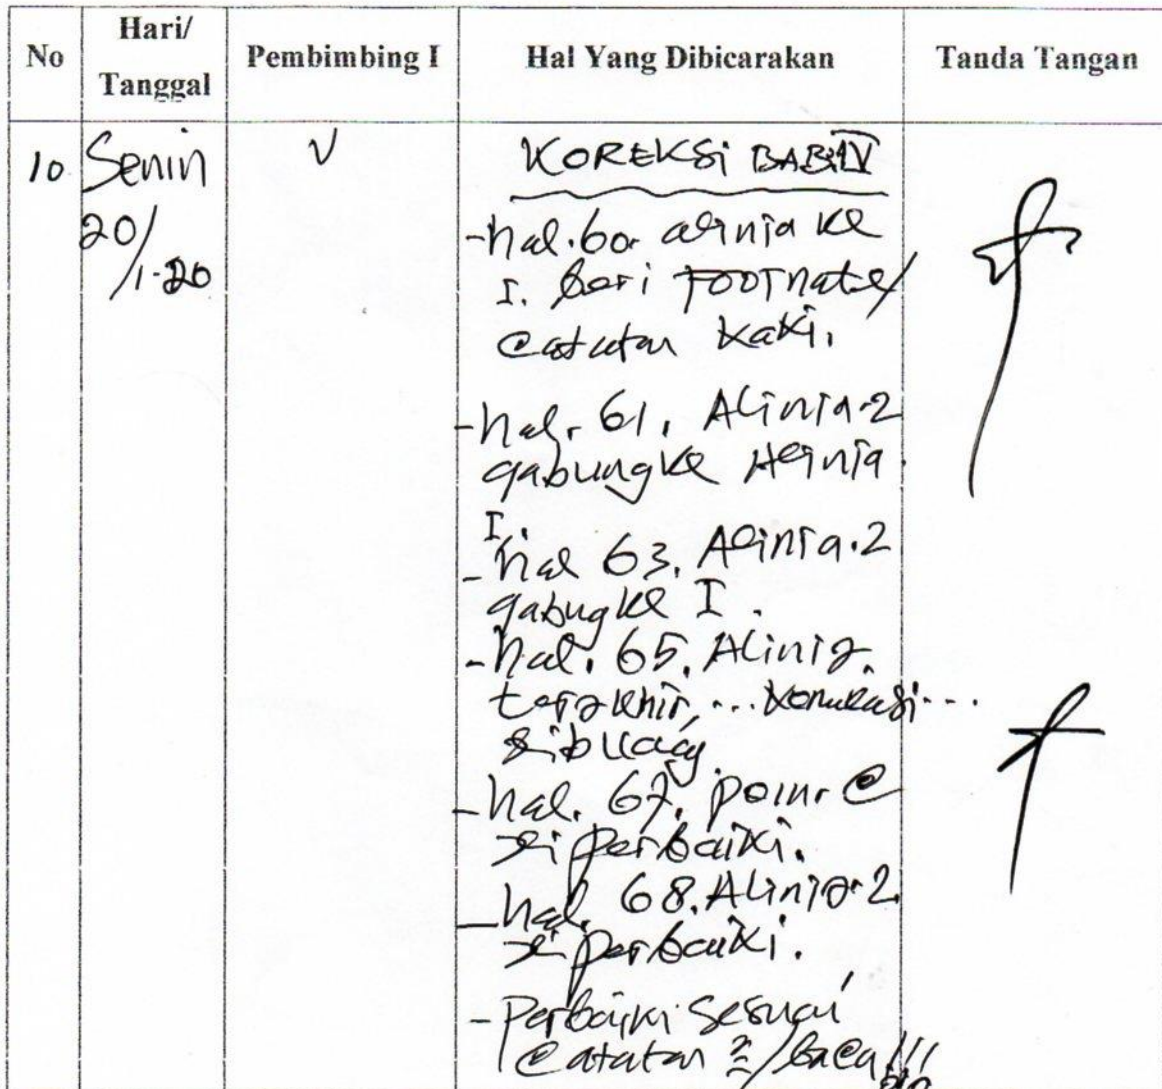 No Hari/ Tanggal Pembimbing I Hal Yang Dibicarakan Tanda Tangan
10 Senin V KOREKSi BAB IV
20/1-20
- hal. 60. alinia ke
I. beri FOOTnote/
Catatan kaki.
- hal. 61. Alinia 2
gabung ke Alinia
I.
- hal 63. Alinia.2
gabug ke I.
- hal. 65. Alinia.
terakhir, ... ...
dibuang
- hal. 67. poin. C
di perbaiki.
- hal. 68. Alinia.2
di perbaiki.
- Perbaiki sesuai
Catatan /baca!!!